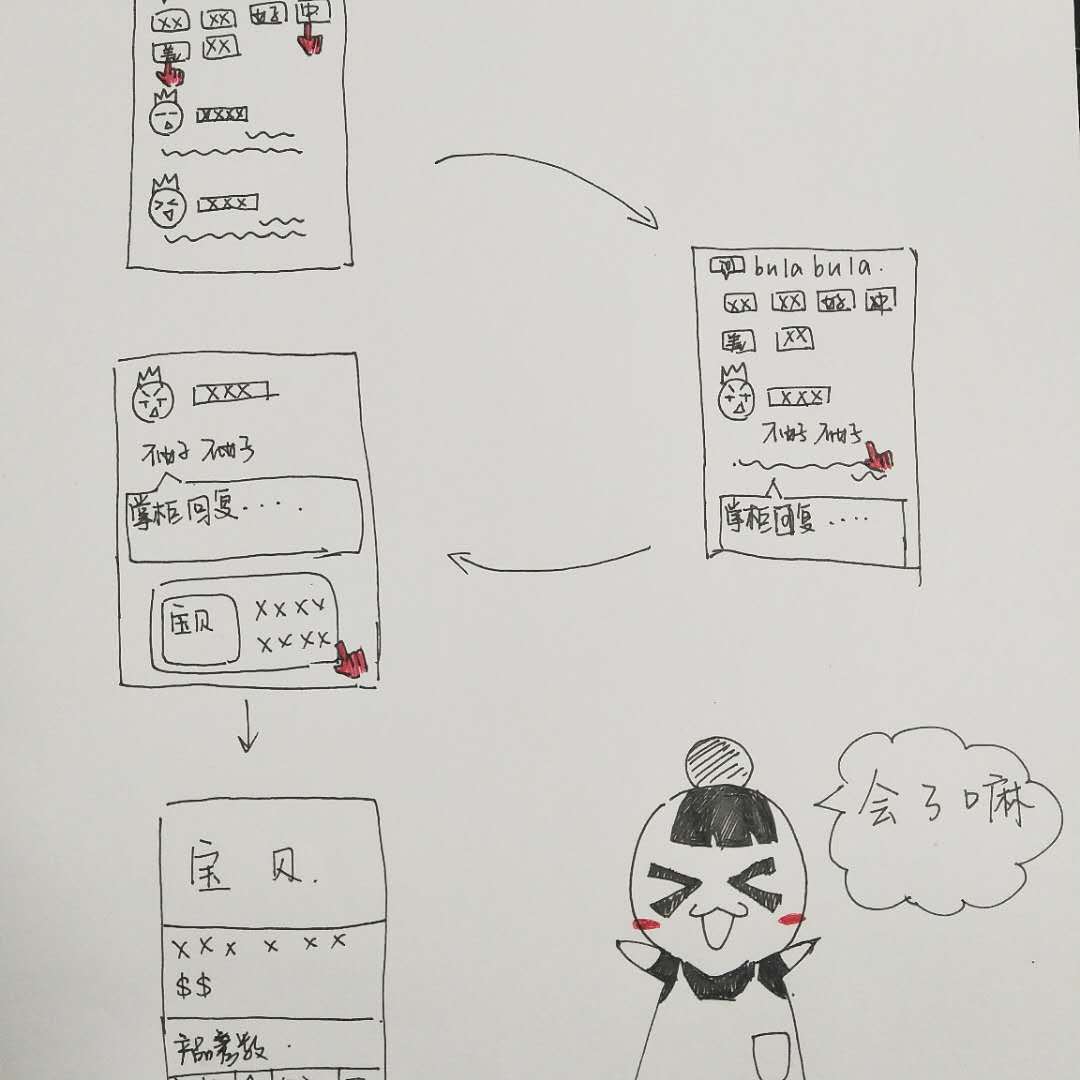 XX XX 好 中
差 XX
XXXX
XXX
问 bula bula.
XX XX 好 中
差 XX
XXX
不好 不好
掌柜回复....
XXX
不好 不好
掌柜回复....
宝贝
XXXX
XXXX
宝贝.
XXX X XX
$$
产品参数.
会了口嘛